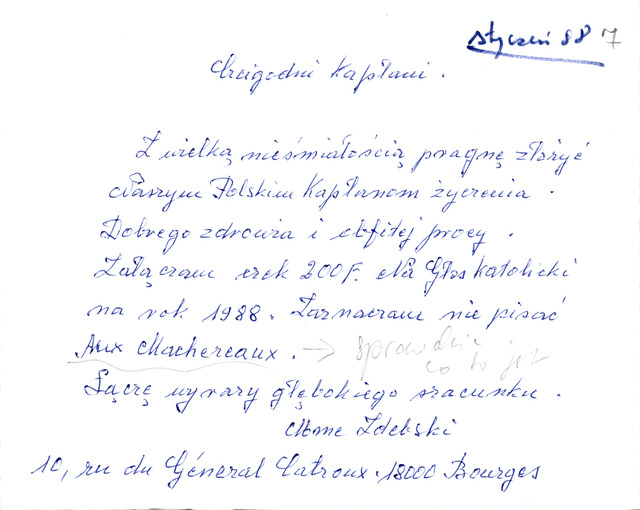 styczeń 88 7
Czcigodni Kapłani.
Z wielką nieśmiałością pragnę złożyć
Naszym Polskim Kapłanom życzenia.
Dobrego zdrowia i obfitej pracy.
Załączam czek 200 F. Na Głos Katolicki
na rok 1988. Zaznaczam nie pisać
Aux Machereaux. → sprawdzić
co to jest
Łączę wyrazy głębokiego szacunku.
Mme Zdebski
10, ru du Géneral Catroux. 18000 Bourges